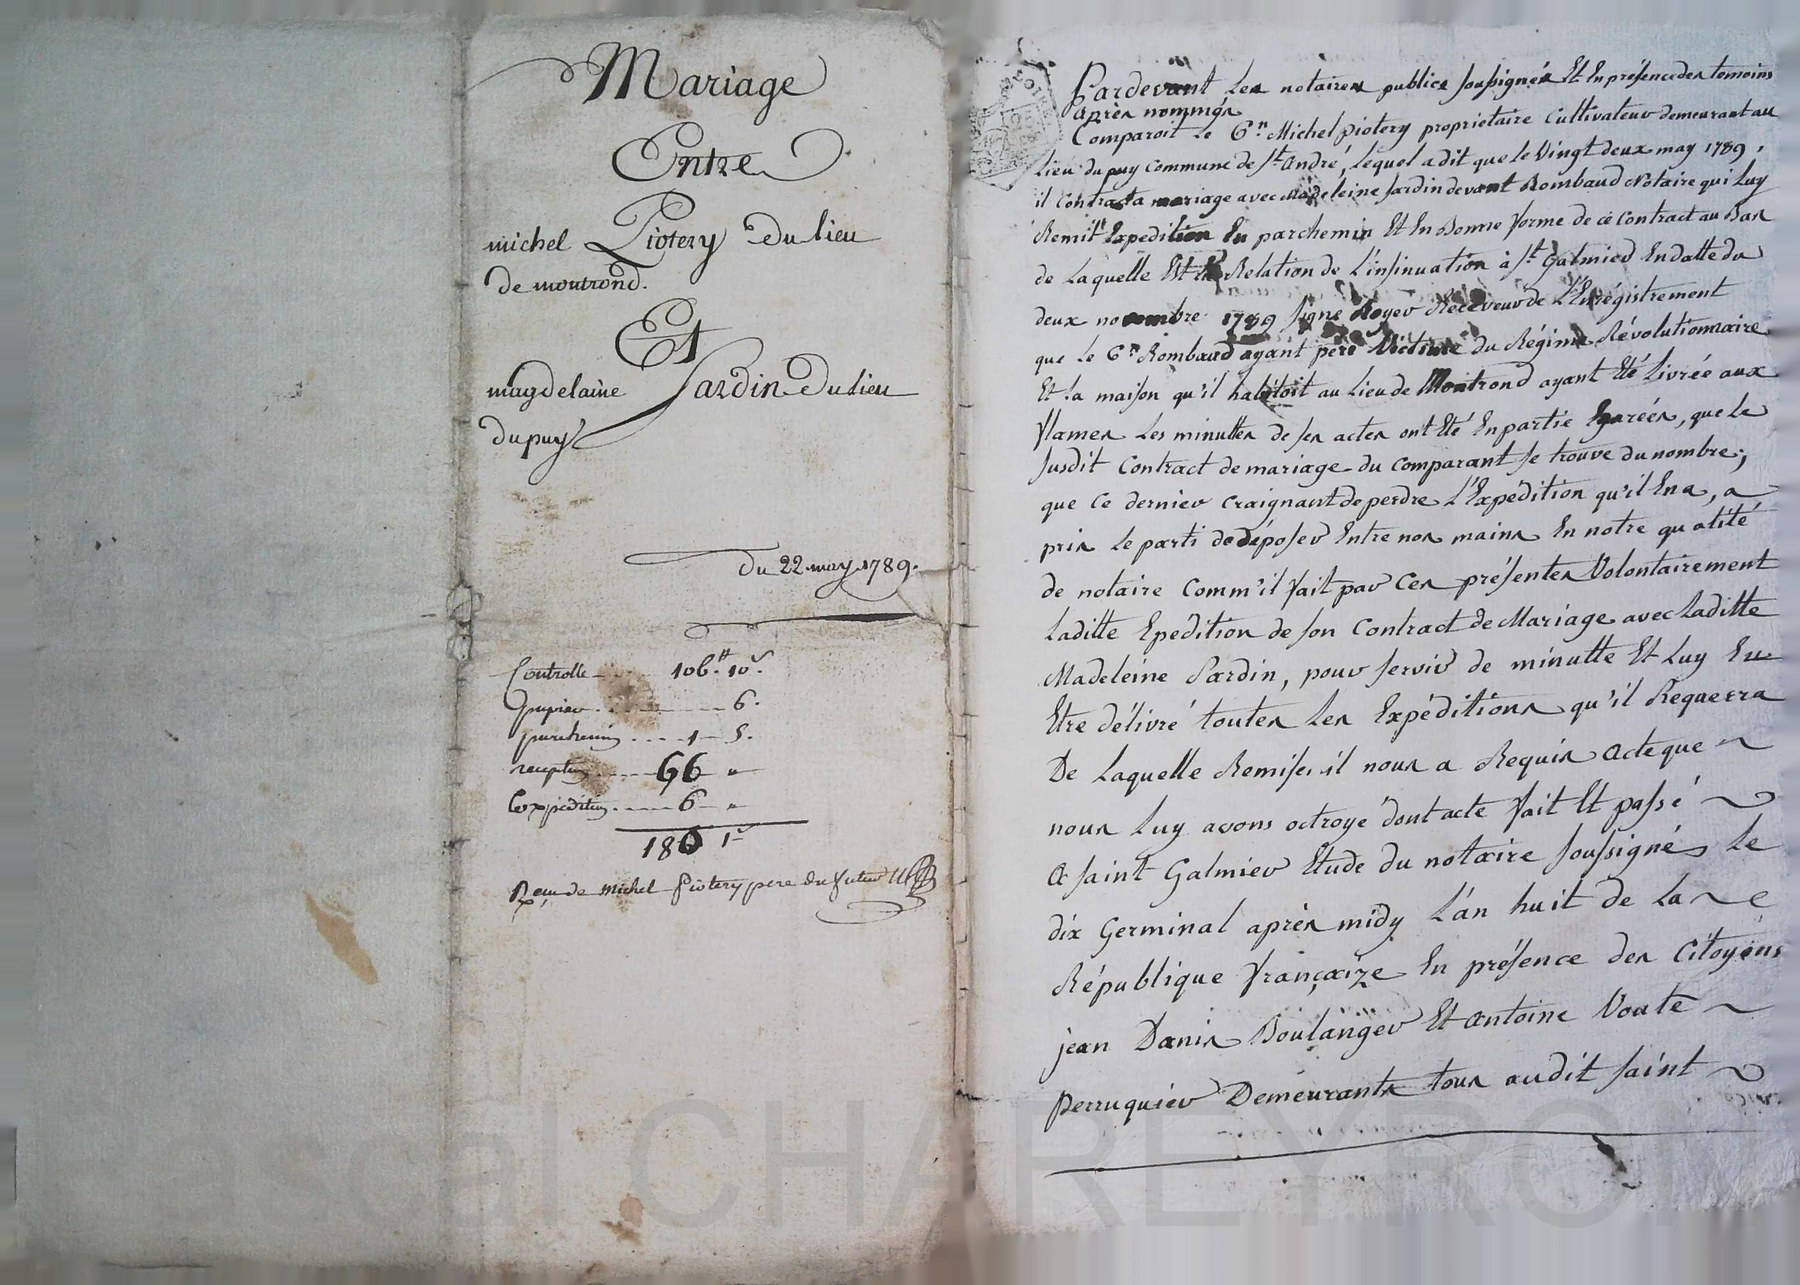 Mariage
Entre
michel Piotery du lieu
de montrond.
Et
magdelaine Jardin du lieu
du puy
du 22 may 1789.
Controlle 106.tt 10.s
papier 6.
parchemin 1 - 5.
reception 66 "
Expedition 6 "
180 1
Reçu de michel Piotery pere du futur
Pardevant Les notaires publics soussignés Et En présence des temoins
après nommés
Comparoit le C.n Michel piotery proprietaire Cultivateur demeurant au
lieu du puy Commune de St. André, lequel a dit que le Vingt deux may 1789,
il Contracta mariage avec Madeleine Jardin devant Rombaud Notaire qui luy
Remit Expedition En parchemin Et En Bonne forme de ce Contract au Bas
de Laquelle Est la Relation de L'insinuation à St. Galmier En datte du
deux novembre 1789 signé Royer Receveur de L'Enrégistrement
que le C.n Rombaud ayant peri Victime du Régime Révolutionnaire
Et la maison qu'il habitoit au Lieu de Montrond ayant Eté Livrée aux
flames Les minuttes de ses actes ont Eté En partie Egarées, que le
susdit Contract de mariage du Comparant se trouve du nombre;
que Ce dernier Craignant de perdre L'Expédition qu'il En a, a
pris Le parti de déposer Entre nos mains En notre qualité
de notaire Comm'il fait par Ces présentes Volontairement
Laditte Epedition de son Contract de Mariage avec Laditte
Madeleine Jardin, pour servir de minutte Et Luy En
Etre délivré toutes Les Expéditions qu'il Requerra
De Laquelle Remise, il nous a Requis acte que
nous Luy avons octroyé dont acte fait Et passé
a saint Galmier Etude du notaire soussigné, Le
dix Germinal après midy L'an huit de La
République françaize En présence des Citoyens
jean Danis Boulanger Et antoine Voute
perruquier Demeurants tous audit saint
Pascal CHAREYRON